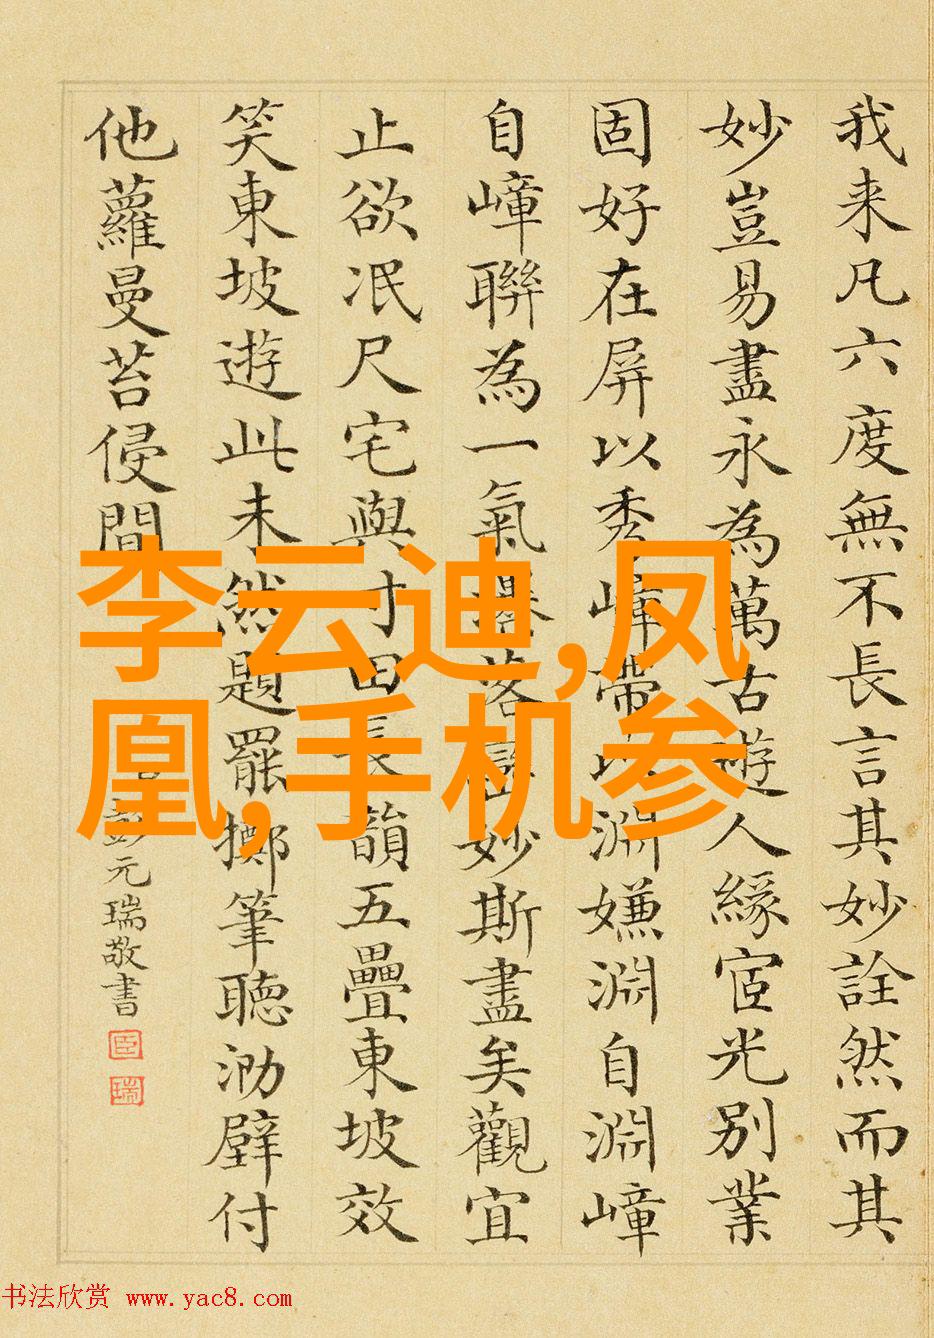 我来凡六度無不長言其妙詮然而其
妙豈易盡永為萬古遊人緣宧光別業
固好在屏以秀嶂帶以淵嫌淵自淵嶂
自嶂聯為一氣落妙斯盡矣觀宜
止欲泯尺宅與寸田長韻五疊東坡效
笑東坡遊此未然題罷擲筆聽泐壁付
他蘿曼苔侵間
彭元瑞敬書
臣
瑞
李云迪,凤
凰,手机参
书法欣赏 www.yac8.com